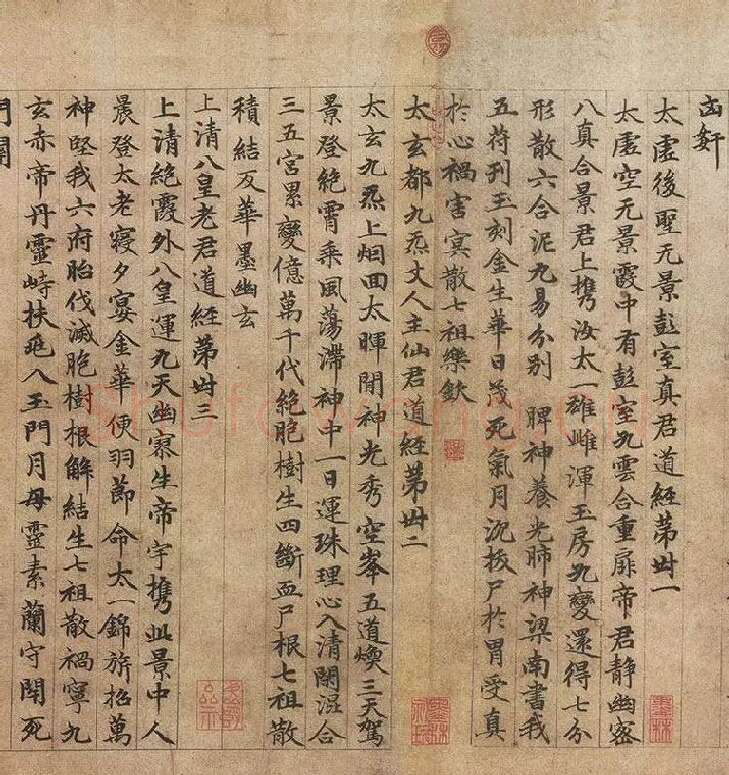 凼奸
太虛後聖无景彭室真君道經苐卌一
太虛空无景霞中有彭室九雲合重扉帝君靜幽密
八真合景君上攜汝太一雄雌渾玉房九變還得七分
形散六合泥丸易分別 脾神養光肺神梁南書我
五符刊玉刻金生華日茂死氣月沉拔尸於胃受真
於心禍害冥散七祖樂欽
太玄都九炁丈人主仙君道經苐卌二
太玄九炁上烟回太暉開神光秀空峯五道煥三天駕
景登絕霄乘風蕩滯神中一日運珠理心入清關混合
三五宮累變億萬千代絕胞樹生四斷血尸根七祖散
積結反華墨幽玄
上清八皇老君道經苐卌三
上清絕霞外八皇運九天幽寥生帝宇攜此景中人
晨登太老寢夕宴金華便羽節命太一錦旂招萬
神堅我六府胎伐滅胞樹根解結生七祖散禍寧九
玄赤帝丹靈峙扶迎入玉門月母靈素蘭守閇死